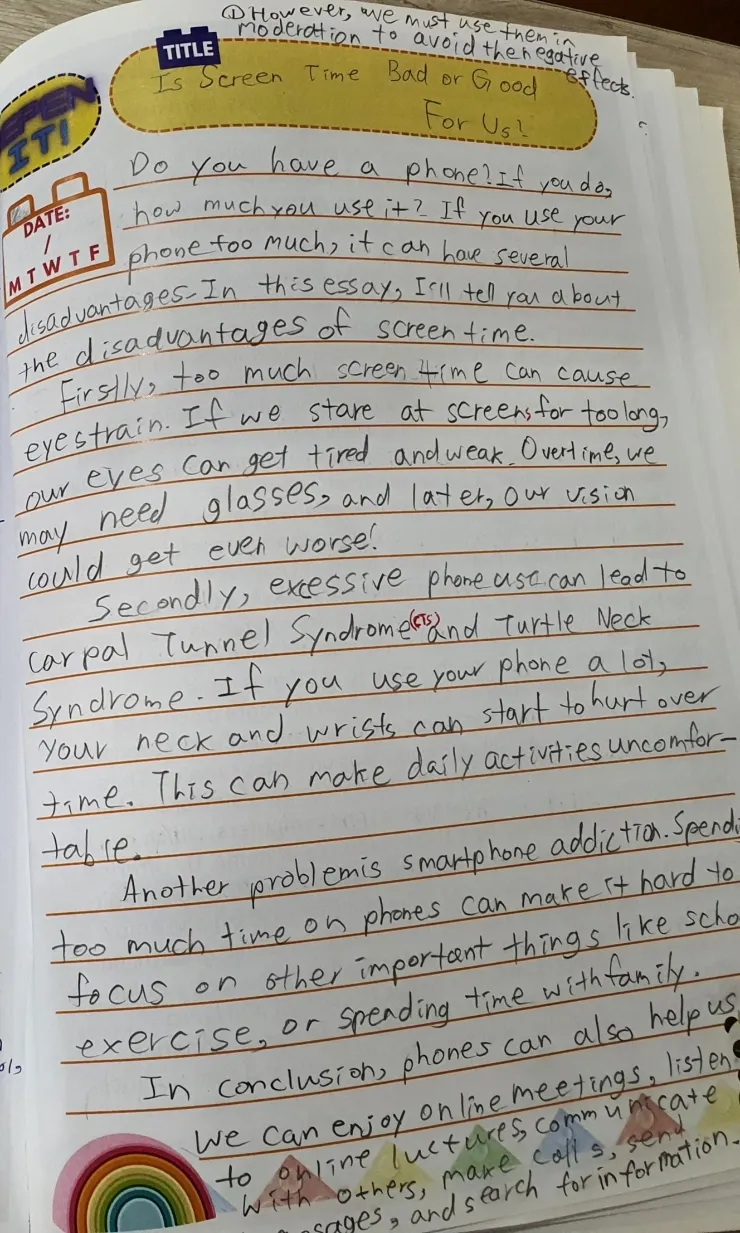 ① However, we must use them in
moderation to avoid the negative
effects.
TITLE
Is Screen Time Bad or Good
For Us?
PEN
IT!
DATE:
/
M T W T F
Do you have a phone? If you do,
how much you use it? If you use your
phone too much, it can have several
disadvantages. In this essay, I'll tell you about
the disadvantages of screen time.
Firstly, too much screen time can cause
eyestrain. If we stare at screens for too long,
our eyes can get tired and weak. Overtime, we
may need glasses, and later, our vision
could get even worse!
Secondly, excessive phone use can lead to
Carpal Tunnel Syndrome (CTS) and Turtle Neck
Syndrome. If you use your phone a lot,
your neck and wrists can start to hurt over
time. This can make daily activities uncomfor-
table.
Another problem is smartphone addiction. Spendi
too much time on phones can make it hard to
focus on other important things like scho
exercise, or spending time with family.
In conclusion, phones can also help us
We can enjoy online meetings, listen
to online luctures, communicate
with others, make calls, send
sages, and search for information.